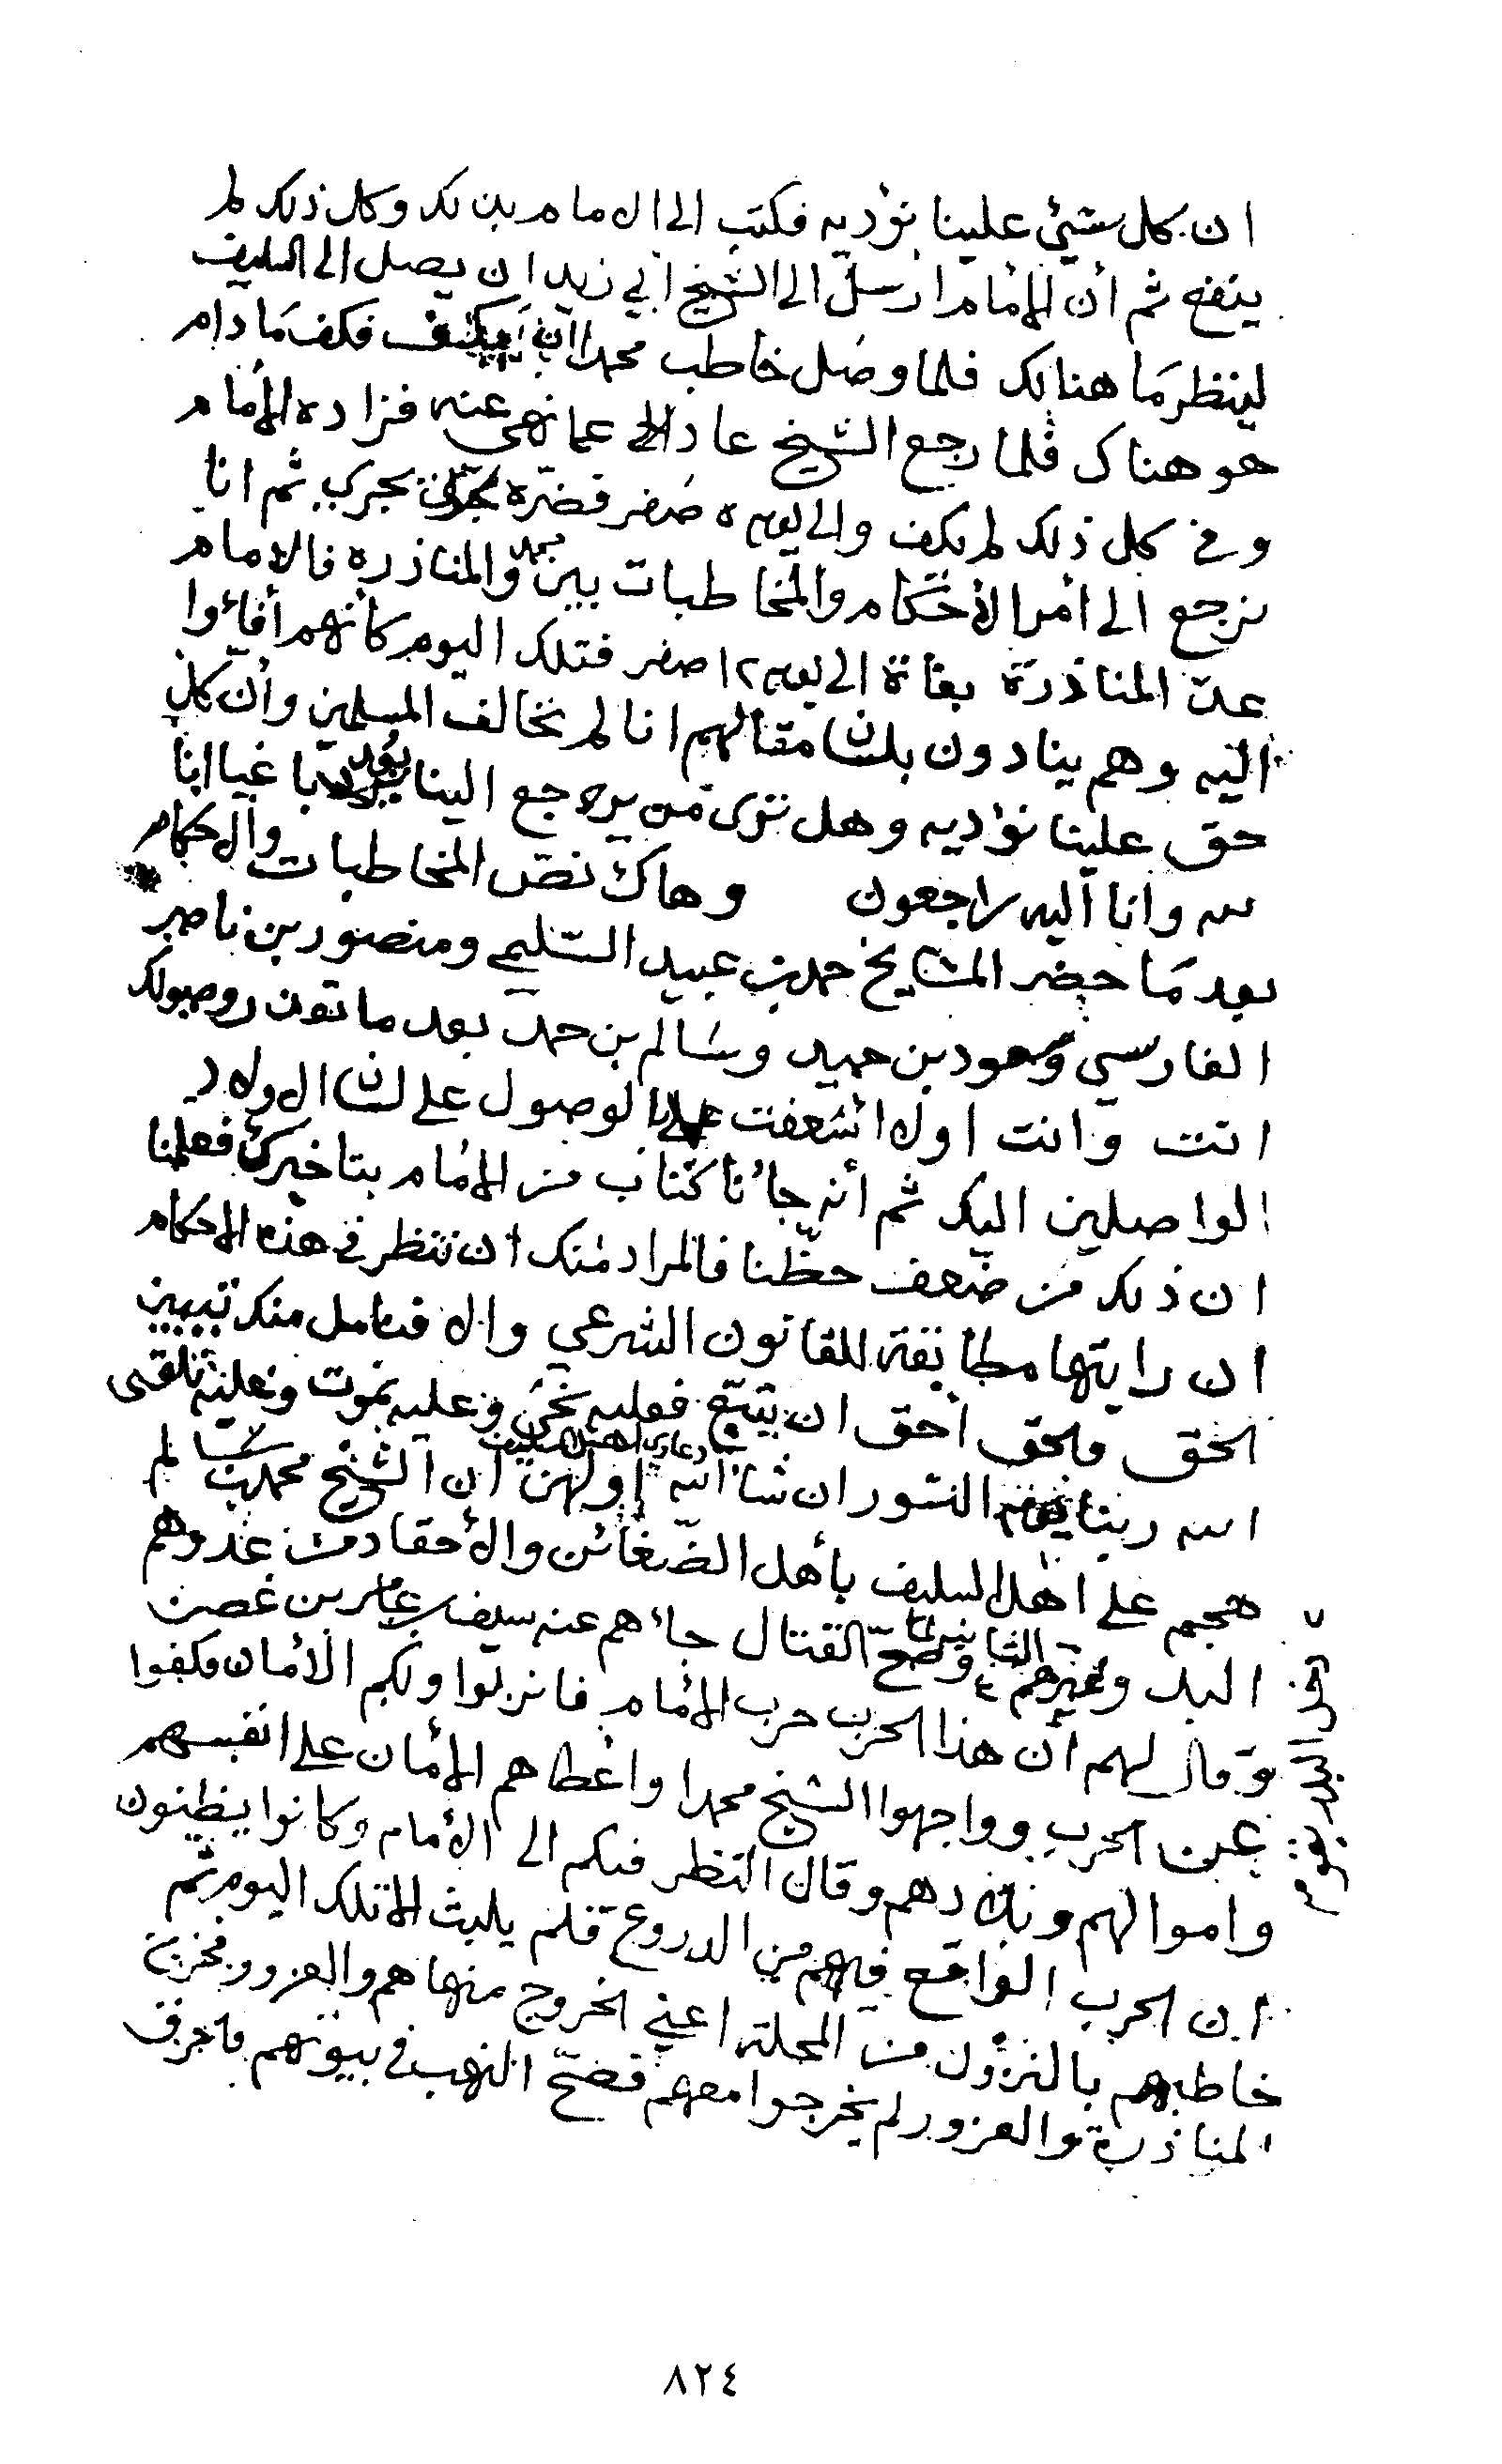 ان كل شيئ علينا نؤديه فكتب الى الامام بذلك وكل ذلك لم
ينفع ثم أن الإمام ارسل الى الشيخ أبي زيد ان يصل الى السليف
لينظر ما هنالك فلما وصل خاطب محمدا ان يكف فكف ما دام
هو هناك فلما رجع الشيخ عاد الى عما نهي عنه فزاده الأمام
وفي كل ذلك لم يكف والى يوم ٥ صفر قضره يجري ثم انا
نرجع الى أمر الأحكام والمخاطبات بين محمد والمناذره فالامام
عد المناذرة بغاة الى يوم ١٢ صفر فتلك اليوم كأنهم أفاؤا
اليه وهم ينادون بلسان مقالهم انا لم نخالف المسلمين وأن كل
حق علينا نؤديه وهل ترى من يرجع الينا يعد باغيا انا
لله وانا اليه راجعون وهاك نص المخاطبات والاحكام
بعد ما حضر المشايخ حمد بن عبيد السليمي ومنصور بن ناصر
الفارسي وسعود بن حميد وسالم بن حمد بعد ما تعون روصولك
انت وانت اولا أسعفت بالوصول على لسان الاولاد
الواصلين اليك ثم أنه جائنا كتاب من الإمام بتاخيرك فعلمنا
ان ذلك من ضعف حظنا فالمراد منك ان تنظر في هذه الاحكام
ان رايتها مطابقة للقانون الشرعي والا فنامل منك تبيين
الحق فالحق أحق ان يتبع فعليه نحيى وعليه نموت وعليه نلقى
الله ربنا يوم النشور ان شاء الله دعاوي اهل السليف اولهن أن الشيخ محمد بن سالم
هجم على اهل السليف بأهل الضغائن والأحقاد من عدوهم
البلد وغيرهم وضح القتال جاءهم عنه سيف بن عامر بن غصن
وقال لهم أن هذا الحرب حرب الإمام فانزلوا ولكم الأمان فكفوا
عن الحرب وواجهوا الشيخ محمدا واعطاهم الأمان على انفسهم
واموالهم وبلادهم وقال النظر فيكم الى الأمام وكانوا يظنون
ان الحرب الواقع فيهم من الدروع فلم يلبث الا تلك اليوم ثم
خاطبهم بالنزول من المحلة اعني الخروج منها هم والعزور فخرجت
المناذرة والعزور لم يخرجوا معهم فضح النهب في بيوتهم فاحرق
٨٢٤